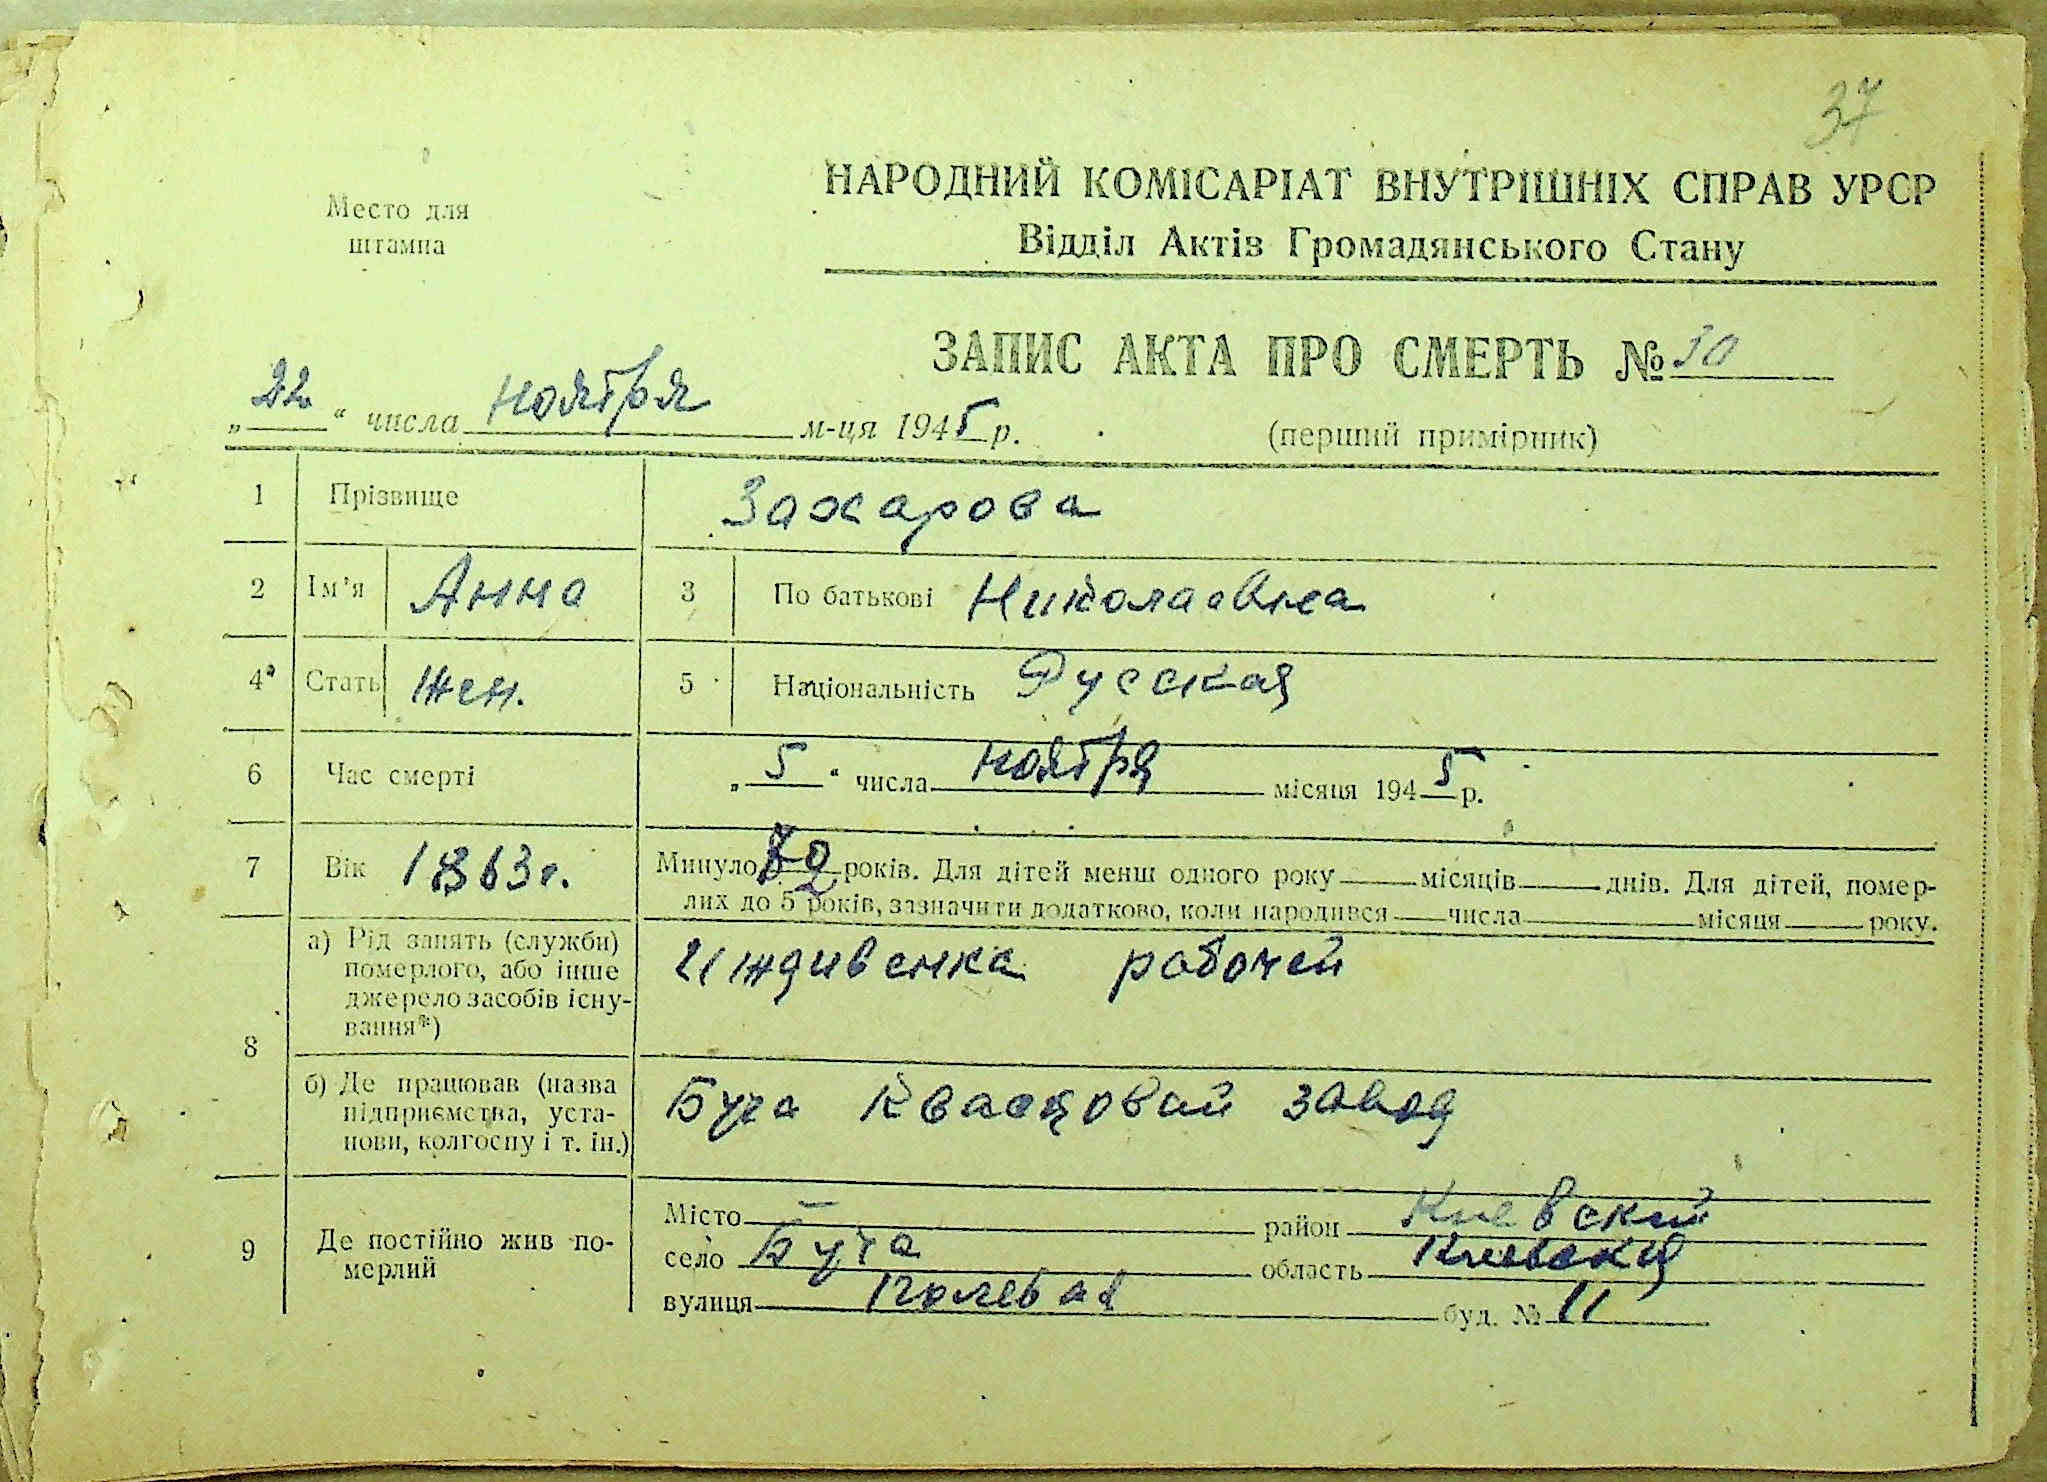 37
Место для
штампа
НАРОДНИЙ КОМІСАРІАТ ВНУТРІШНІХ СПРАВ УРСР
Відділ Актів Громадянського Стану
ЗАПИС АКТА ПРО СМЕРТЬ № 30
„22“ числа ноября м-ця 1945 р.
(перший примірник)
1 Прізвище Захарова
2 Ім'я Анна 3 По батькові Николаевна
4 Стать жен. 5 Національність Русская
6 Час смерті „5“ числа ноября місяця 1945 р.
7 Вік 1863 г. Минуло 82 років. Для дітей менш одного року місяців днів. Для дітей, помер-
лих до 5 років, зазначити додатково, коли народився числа місяця року.
8 а) Рід занять (служби)
померлого, або інше
джерело засобів існу-
вання*)
Иждивенка рабочей
б) Де працював (назва
підприємства, уста-
нови, колгоспу і т. ін.)
Буча Квасцовай завод
9 Де постійно жив по-
мерлий
Місто — район Киевский
село Буча область Киевская
вулиця Полевая буд. № 11